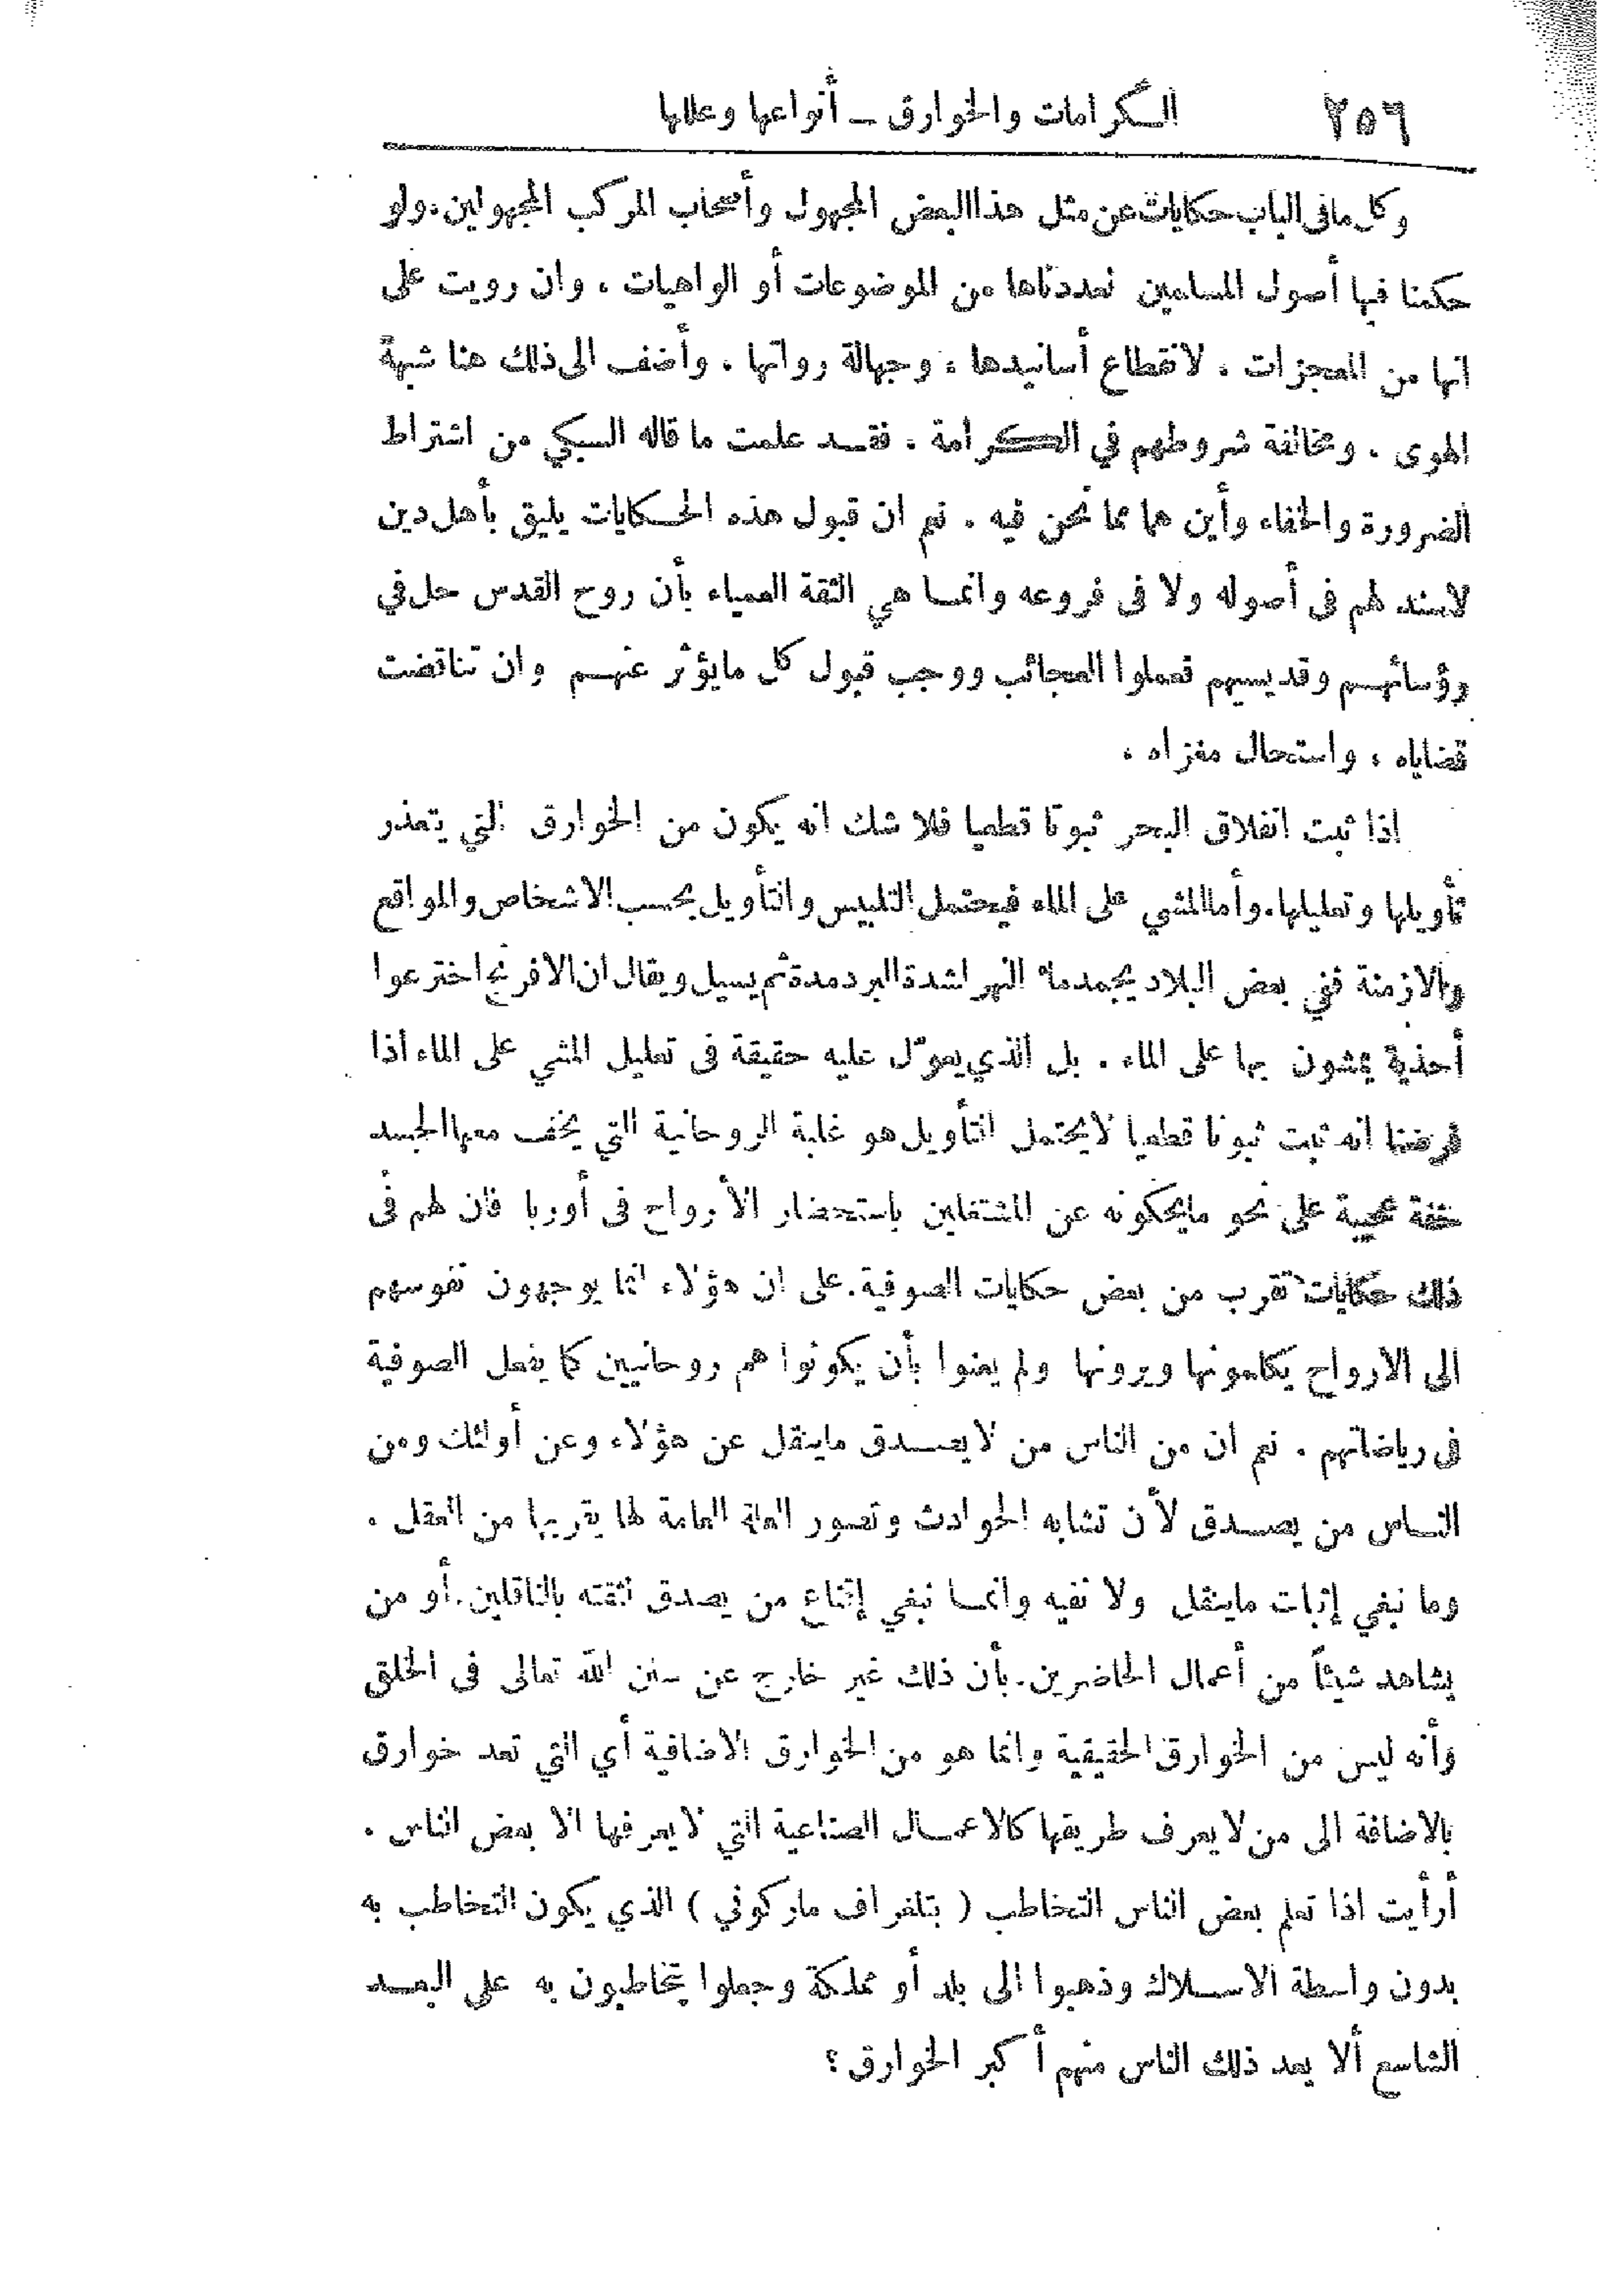 ٢٥٦
الكرامات والخوارق ــ أنواعها وعللها
وكل مافى الباب حكايات عن مثل هذا البعض المجهول وأصحاب المركب المجهولين. ولو
حكمنا فيها أصول المسلمين لعددناها من الموضوعات أو الواهيات ، وان رويت على
انها من المعجزات ، لانقطاع أسانيدها ، وجهالة رواتها ، وأضف الى ذلك هنا شبهة
الهوى ، ومخالفة شروطهم في الكرامة ، فقد علمت ما قاله السبكي من اشتراط
الضرورة والخفاء وأين هما مما نحن فيه . نعم ان قبول هذه الحكايات يليق بأهل دين
لاسند لهم فى أصوله ولا فى فروعه وانما هي الثقة العمياء بأن روح القدس حل في
رؤسائهم وقديسيهم فعملوا العجائب ووجب قبول كل مايؤثر عنهم وان تناقضت
قضاياه ، واستحال مغزاه ،
اذا ثبت انفلاق البحر ثبوتا قطعيا فلا شك انه يكون من الخوارق التي يتعذر
تأويلها وتعليلها. وأما المشي على الماء فيحتمل التلبيس والتأويل بحسب الاشخاص والمواقع
والازمنة ففي بعض البلاد يجمد ماء النهر لشدة البرد مدة ثم يسيل ويقال ان الافرنج اخترعوا
أحذية يمشون بها على الماء . بل الذي يعوّل عليه حقيقة فى تعليل المشي على الماء اذا
فرضنا انه ثبت ثبوتا قطعيا لايحتمل التأويل هو غلبة الروحانية التي يخف معها الجسد
خفة عجيبة على نحو مايحكونه عن المشتغلين باستحضار الأرواح فى أوربا فان لهم فى
ذلك حكايات تقرب من بعض حكايات الصوفية. على ان هؤلاء انما يوجهون نفوسهم
الى الارواح يكلمونها ويرونها ولم يعنوا بأن يكونوا هم روحانيين كما يفعل الصوفية
فى رياضاتهم . نعم ان من الناس من لايصدق ماينقل عن هؤلاء وعن أولئك ومن
الناس من يصدق لأن تشابه الحوادث وتصور العلة العامة لها يقربها من العقل .
وما نبغي إثبات ماينقل ولا نفيه وانما نبغي إقناع من يصدق لثقته بالناقلين. أو من
يشاهد شيئاً من أعمال الحاضرين. بأن ذلك غير خارج عن سنن الله تعالى فى الخلق
وأنه ليس من الخوارق الحقيقية وانما هو من الخوارق الاضافية أي التي تعد خوارق
بالاضافة الى من لايعرف طريقها كالاعمال الصناعية التي لايعرفها الا بعض الناس .
أرأيت اذا تعلم بعض الناس التخاطب ( بتلغراف ماركوني ) الذي يكون التخاطب به
بدون واسطة الاسلاك وذهبوا الى بلد أو مملكة وجعلوا يتخاطبون به على البعد
الشاسع ألا يعد ذلك الناس منهم أكبر الخوارق ؟